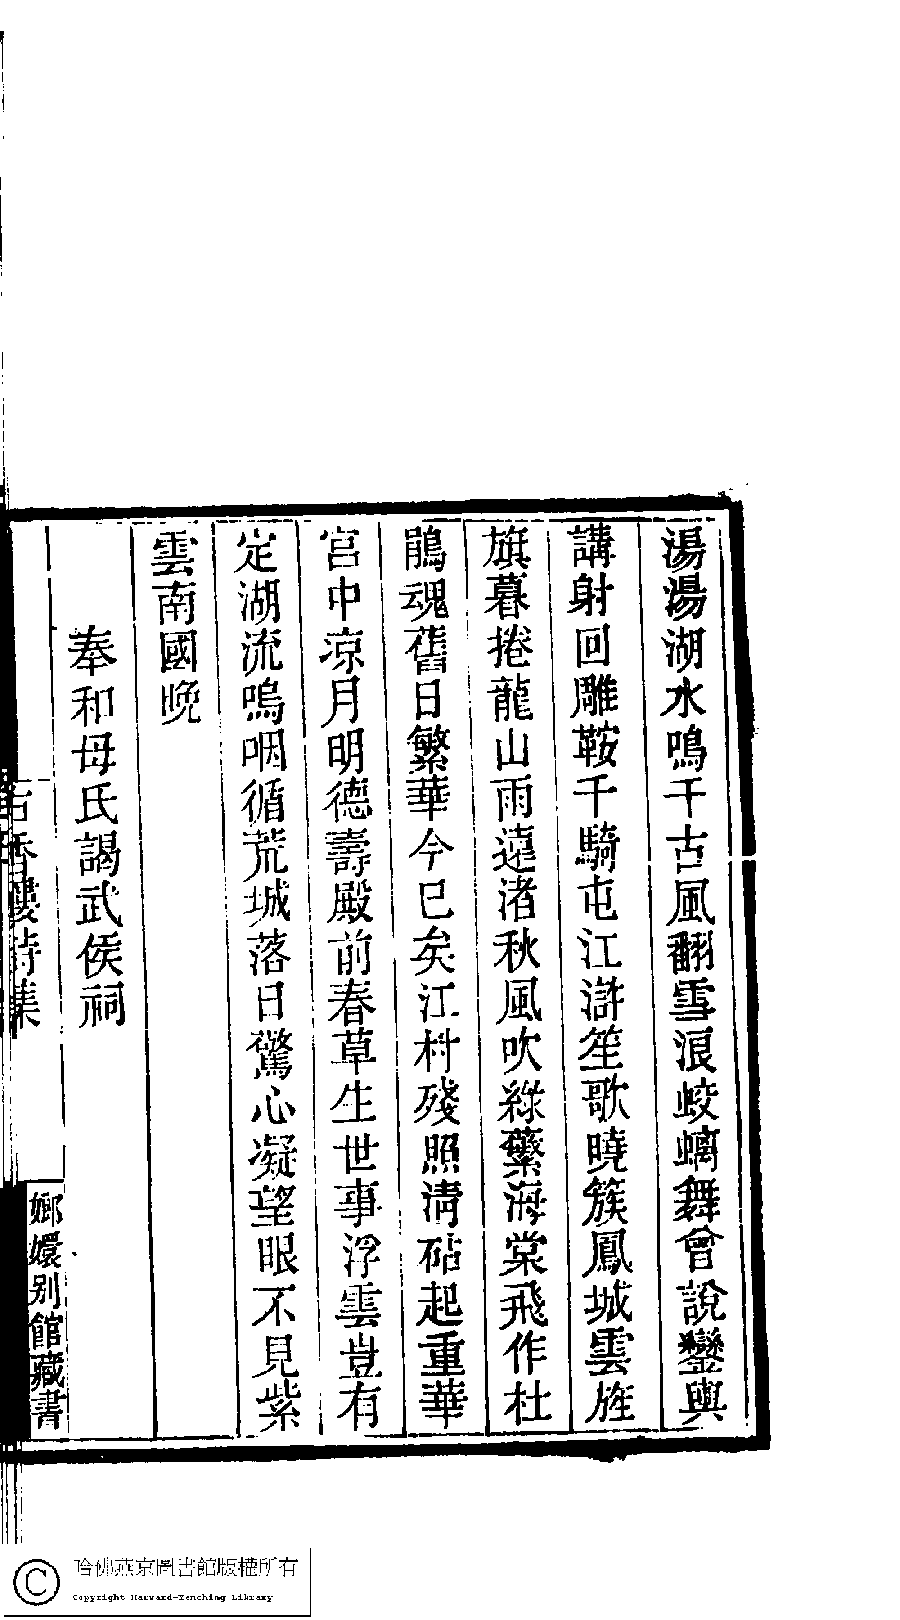 湯湯湖水鳴千古風翻雪浪蛟螭舞曾說鑾輿
講射回雕鞍千騎屯江滸笙歌曉簇鳳城雲旌
旗暮捲龍山雨遠渚秋風吹綠蘩海棠飛作杜
鵑魂舊日繁華今已矣江村殘照清砧起重華
宮中凉月明德壽殿前春草生世事浮雲豈有
定湖流嗚咽循荒城落日驚心凝望眼不見紫
雲南國晚
奉和母氏謁武侯祠
古香樓詩集
嫏嬛别館藏書
哈佛燕京圖書館版權所有
Copyright Harvard-Yenching Library